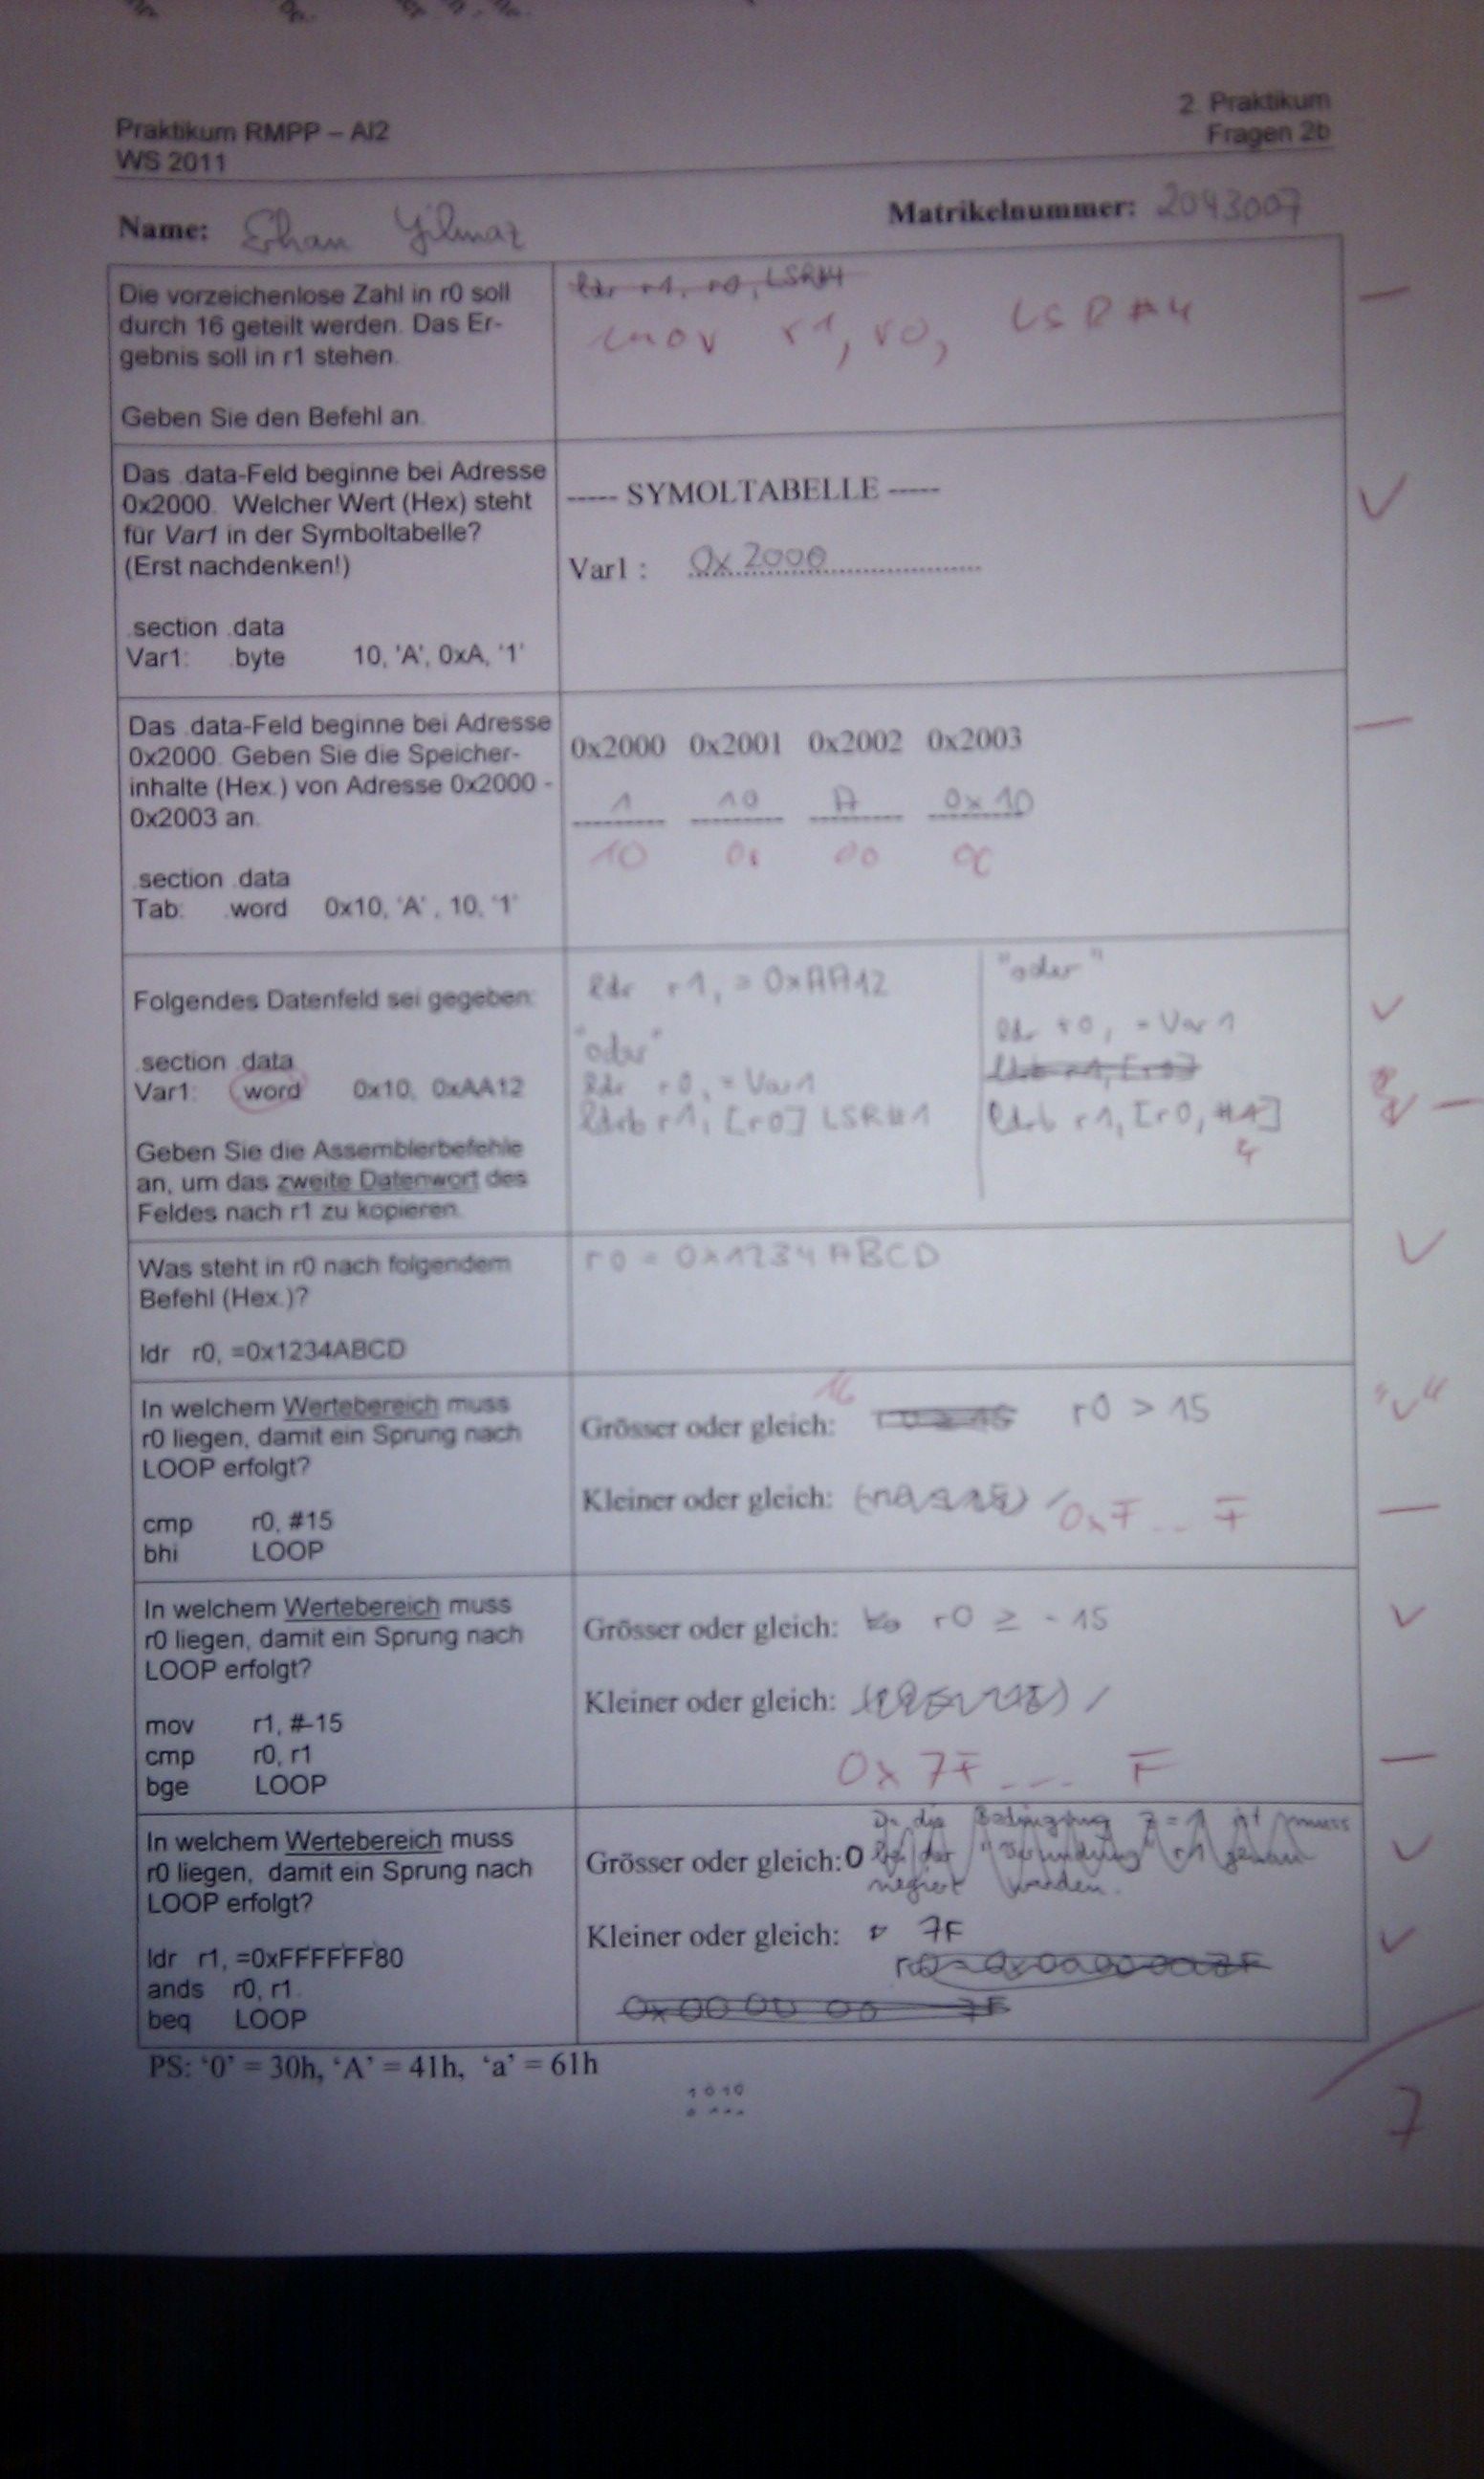 2. Praktikum
Praktikum RMPP – AI2
Fragen 2b
WS 2011
Name: Erhan Yilmaz
Matrikelnummer: 2043007
Die vorzeichenlose Zahl in r0 soll
durch 16 geteilt werden. Das Er-
gebnis soll in r1 stehen.
Geben Sie den Befehl an.
ldr r1, r0, LSR#4
mov r1, r0, LSR #4
Das .data-Feld beginne bei Adresse
0x2000. Welcher Wert (Hex) steht
für Var1 in der Symboltabelle?
(Erst nachdenken!)
.section .data
Var1: .byte 10, 'A', 0xA, '1'
----- SYMOLTABELLE -----
Var1 : 0x2000
Das .data-Feld beginne bei Adresse
0x2000. Geben Sie die Speicher-
inhalte (Hex.) von Adresse 0x2000 -
0x2003 an.
.section .data
Tab: .word 0x10, 'A', 10, '1'
0x2000 0x2001 0x2002 0x2003
1 10 A 0x10
10 00 00 00
Folgendes Datenfeld sei gegeben:
.section .data
Var1: .word 0x10, 0xAA12
Geben Sie die Assemblerbefehle
an, um das zweite Datenwort des
Feldes nach r1 zu kopieren.
ldr r1, = 0xAA12
"oder"
ldr r0, = Var1
ldrb r1, [r0] LSR#1
"oder"
ldr r0, = Var1
ldrb r1, [r0]
ldrb r1, [r0, #1]
4
Was steht in r0 nach folgendem
Befehl (Hex.)?
ldr r0, =0x1234ABCD
r0 = 0x1234ABCD
In welchem Wertebereich muss
r0 liegen, damit ein Sprung nach
LOOP erfolgt?
cmp r0, #15
bhi LOOP
16
Grösser oder gleich: r0 > 15
Kleiner oder gleich: /
0xF... F
In welchem Wertebereich muss
r0 liegen, damit ein Sprung nach
LOOP erfolgt?
mov r1, #-15
cmp r0, r1
bge LOOP
Grösser oder gleich: r0 ≥ -15
Kleiner oder gleich: /
0x7F --- F
In welchem Wertebereich muss
r0 liegen, damit ein Sprung nach
LOOP erfolgt?
ldr r1, =0xFFFFFF80
ands r0, r1
beq LOOP
Da die Bedingung Z=1 ist muss
Grösser oder gleich: 0 bei der r1 genau
negiert werden.
Kleiner oder gleich: 7F
r0=0x0000007F
PS: '0' = 30h, 'A' = 41h, 'a' = 61h
1010
7